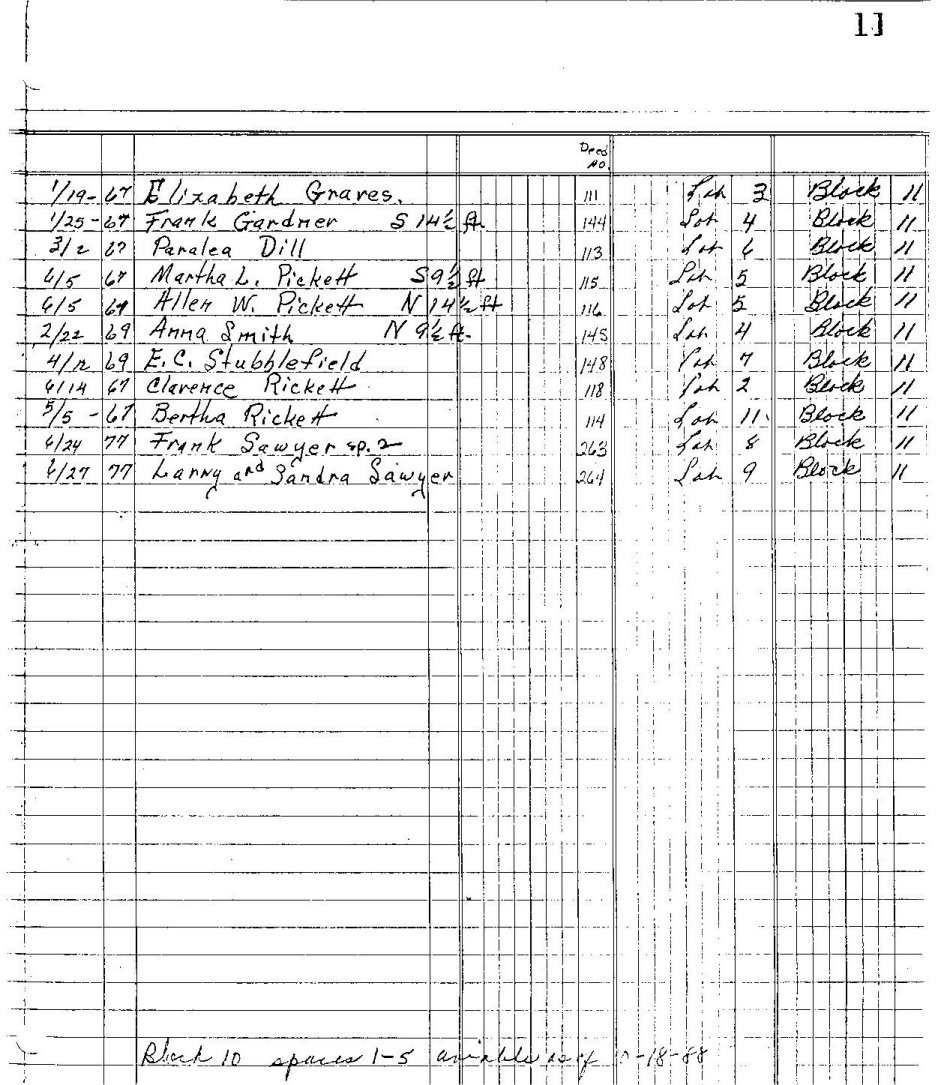 11
Deed
No.
1/19-67 Elizabeth Graves. 111 Lot 3 Block 11
1/25-67 Frank Gardner S 14½ ft. 144 Lot 4 Block 11
3/2 67 Paralea Dill 113 Lot 6 Block 11
6/5 67 Martha L. Pickett S 9½ ft 115 Lot 5 Block 11
6/5 67 Allen W. Pickett N 14½ ft 116 Lot 5 Block 11
2/22 69 Anna Smith N 9½ ft. 145 Lot 4 Block 11
4/12 69 E.C. Stubblefield 148 Lot 7 Block 11
6/14 67 Clarence Rickett 118 Lot 2 Block 11
5/5-67 Bertha Rickett 114 Lot 11 Block 11
6/24 77 Frank Sawyer sp. 2 263 Lot 8 Block 11
6/27 77 Larry and Sandra Sawyer 264 Lot 9 Block 11
Block 10 spaces 1-5 available as of -18-88